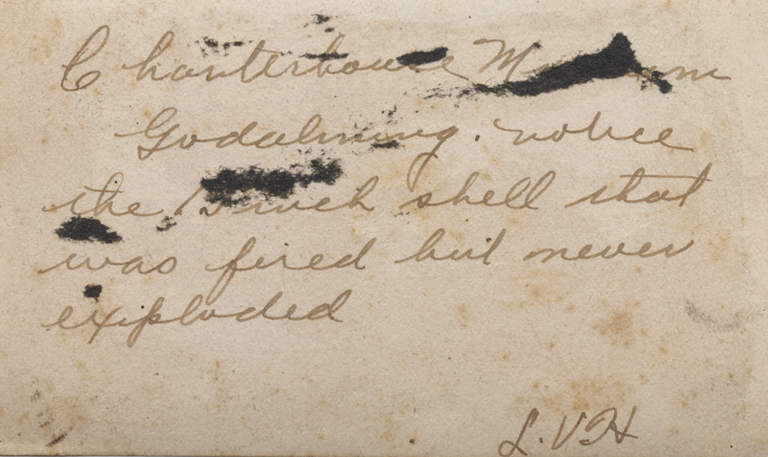 Chanterhouse
Godalming. notice
the inch shell that
was fired but never
exploded
L.VH